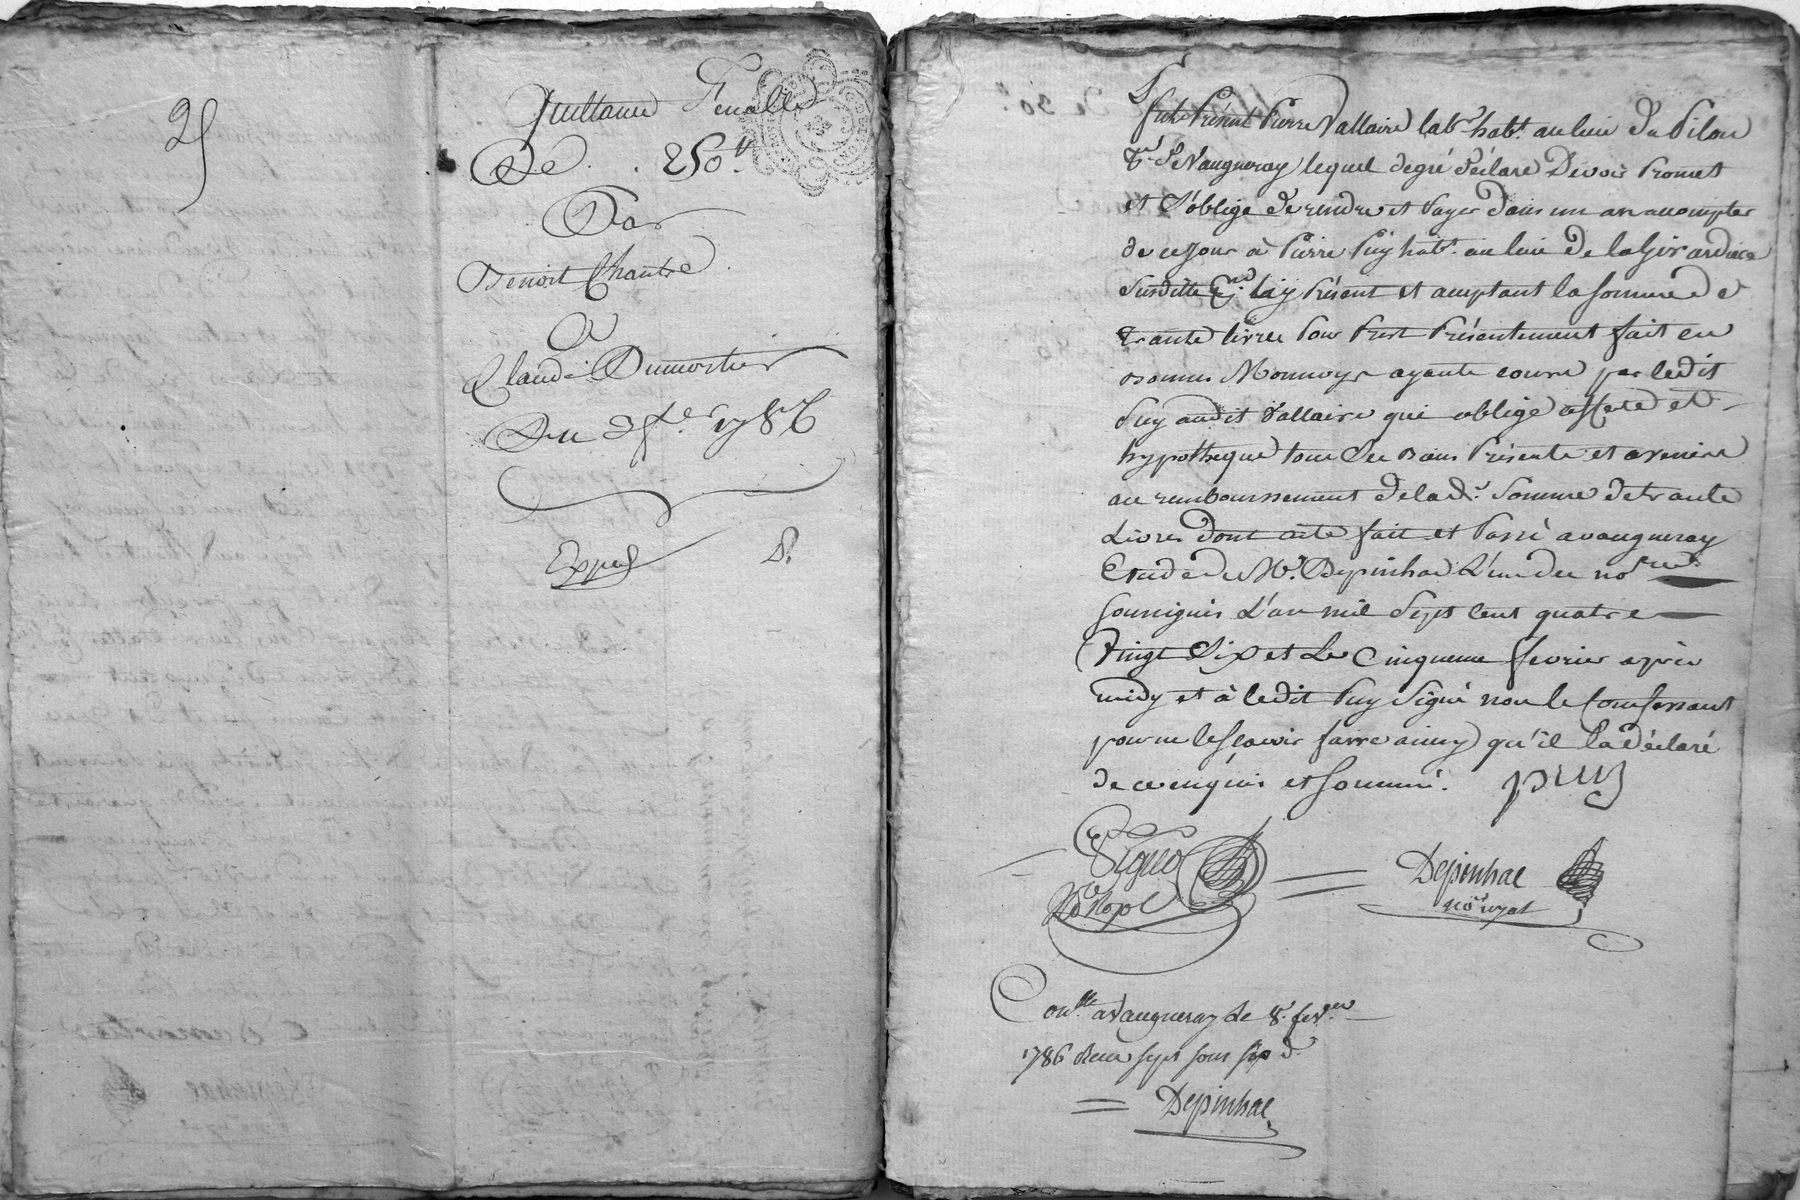 25
Quittance Finalle
De 250tt
Par
Benoit Chantre
A
Claude Dumortier
Du 5 fer 1786
Exped
Fut Présent Pierre Vallaire labr habt au lieu du Pilon
psse de Vaugneray lequel de gré déclare Devoir Promet
et s'oblige de rendre et Payer dans un an a compter
de ce jour à Pierre Puy habt au lieu de la Girardiere
Susditte psse icy Présent et aceptant la somme de
trante livres Pour Prest Présentement fait en
bonnes Monnoye ayante cours par ledit
Puy audit Vallaire qui oblige affecte et
hypotheque tous ses biens Présents et avenirs
au remboursement de lad. Somme de trante
Livres dont acte fait et Passé a vaugneray
Etude de Me Depinhac L'un des nores
Soussignés L'an mil Sept Cent quatre
Vingt Six et Le Cinquieme fevrier après
midy et à ledit Puy Signé non le Confessant
pour ne le sçavoir faire ainsy qu'il l'a déclaré
de ce enquis et sommé. puy
Depinhac
nore royal
Conlle a Vaugneray le 8. fevrier
1786 Reçu sept sous six d.
Depinhac